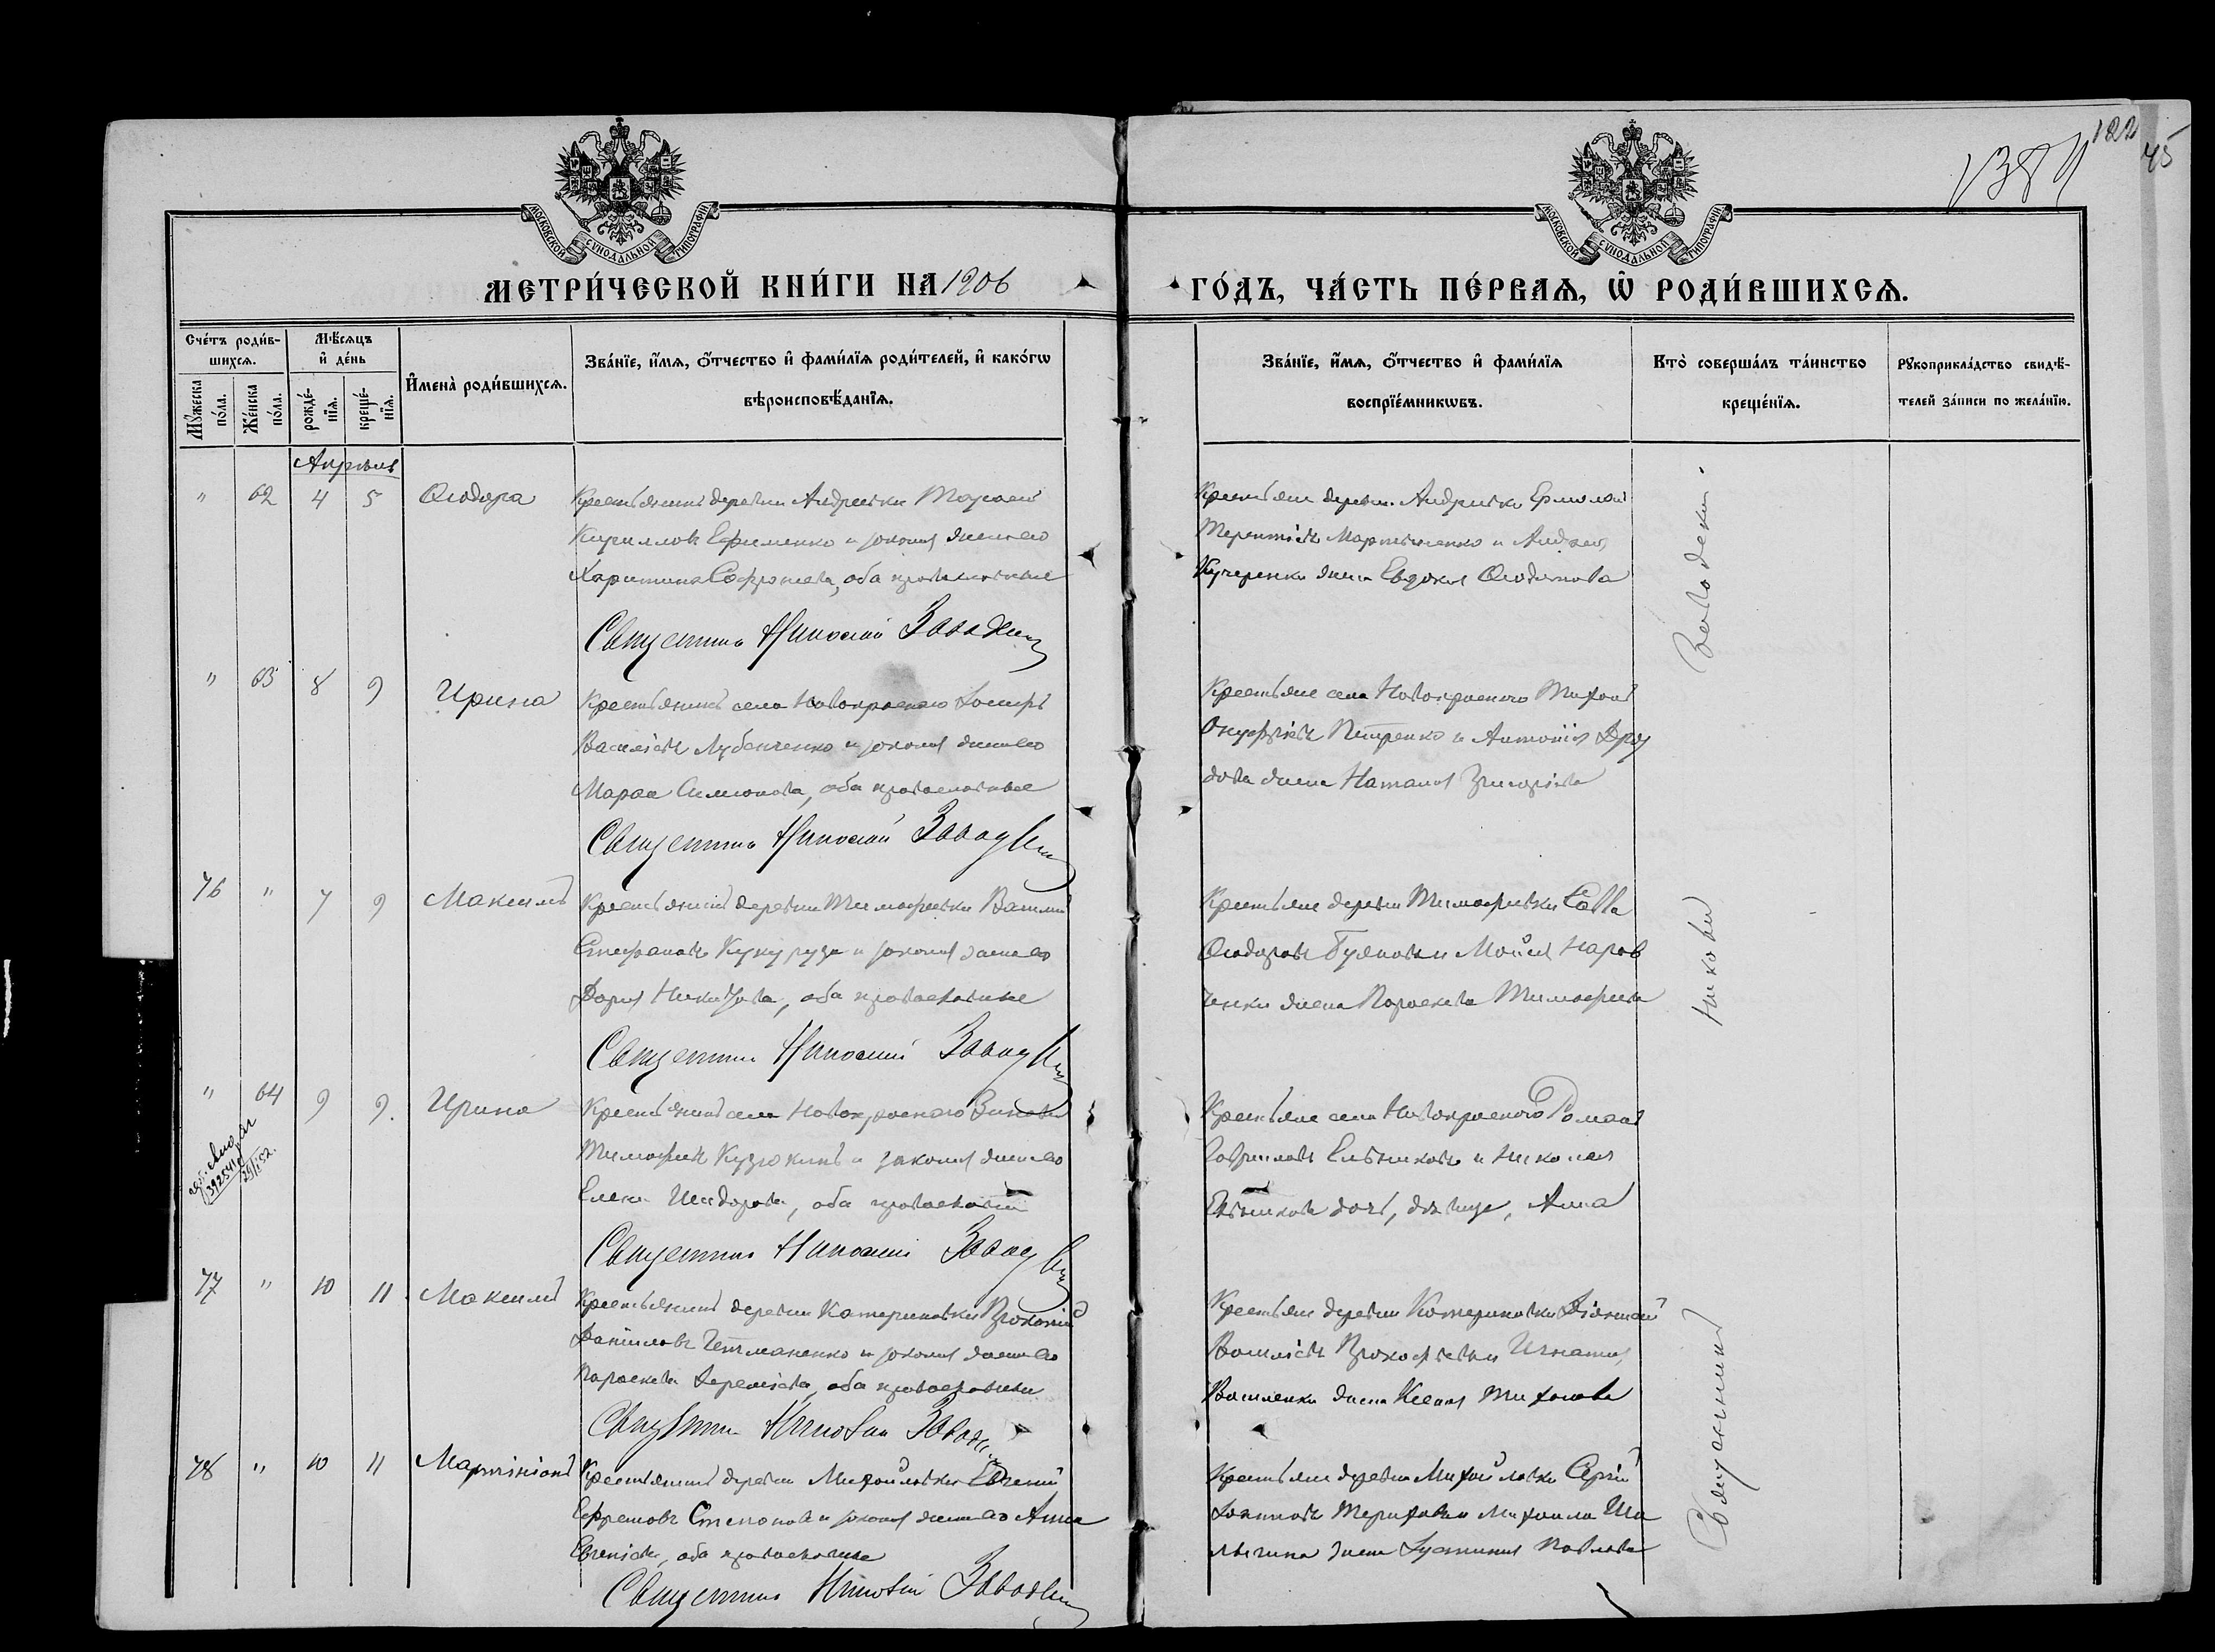 122
45
МОСКОВСКОЙ СѴНОДАЛЬНОЙ ТИПОГРАФІИ
МОСКОВСКОЙ СѴНОДАЛЬНОЙ ТИПОГРАФІИ
МЕТРИ́ЧЕСКОЙ КНИ́ГИ НА 1906
ГО́ДЪ, ЧА́СТЬ ПЕ́РВАѦ, Ѿ РОДИ́ВШИХСѦ.
Сче́тъ роди́в-
шихсѧ.
Мꙋ́жеска по́ла.
Же́нска по́ла.
Мѣ́сѧцъ
и҆ де́нь
рожде́-
нїѧ.
креще́-
нїѧ.
И҆мена̀ роди́вшихсѧ.
Зва́нїе, и҆́мѧ, ѻ҆́тчество и҆ фами́лїѧ роди́телей, и҆ како́гѡ
вѣроисповѣ́данїѧ.
Зва́нїе, и҆́мѧ, ѻ҆́тчество и҆ фами́лїѧ
воспрїе́мникѡвъ.
Кто̀ соверша́лъ та́инство
креще́нїѧ.
Рꙋкоприкла́дство свидѣ́-
телей за́писи по жела́нїю.
Апрѣль
" 62 4 5 Ѳеодора
Крестьянинъ деревни Андреевки Моѵсей
Кирилловъ Ефименко и законная жена его
Харитина Софроніева, оба православные
Священникъ Николай Заводскій
Крестьяне деревни Андреевки Ермолай
Терентіевъ Мартыненко и Андрея
Кучеренки жена Евдокія Ѳеодорова
" 63 8 9 Ирина
Крестьянинъ села Новокрасного Іосифъ
Василіевъ Лубенченко и законная жена его
Марѳа Симеонова, оба православные
Священникъ Николай Заводскій
Крестьяне села Новокрасного Тихонъ
Онуфріевъ Петренко и Антонія Дроз
дова жена Наталія Григоріева
76 " 7 9 Максимъ
Крестьянинъ деревни Тимофеевки Василій
Стефановъ Кукуруза и законная жена его
Дарія Никитова, оба православные
Священникъ Николай Заводскій
Крестьяне деревни Тимофеевки Савва
Ѳеодоровъ
ченки жена Параскева Тимофеева
" 64 9 9. Ирина
392541
25/I 52.
Крестьянинъ села Новокрасного Зиновій
Тимофеевъ Кузюкинъ и законная жена его
Елена Исидорова, оба православные
Священникъ Николай Заводскій
Крестьяне села Новокрасного Романъ
Гавриловъ Ельниковъ и Николая
Ельникова дочь, дѣвица, Анна
77 " 10 11 Максимъ
Крестьянинъ деревни Катериновки Прокопій
Даніиловъ Гетманенко и законная жена его
Параскева Іереміева, оба православные
Священникъ Николай Заводскій
Крестьяне деревни Катериновки
Василіевъ Прокофьевъ и Игнатія
Василенки жена Ксенія Тихонова
78 " 10 11 Мартиніанъ
Крестьянинъ деревни Михайловки Евгеній
Ефремовъ Степановъ и законная жена его Анна
Евгеніева, оба православные
Священникъ Николай Заводскій
Крестьяне деревни Михайловки Сергій
Іоанновъ Терновъ и Михаила Ша
лыгина жена Іустинія Павлова
Священникъ Николай Заводскій